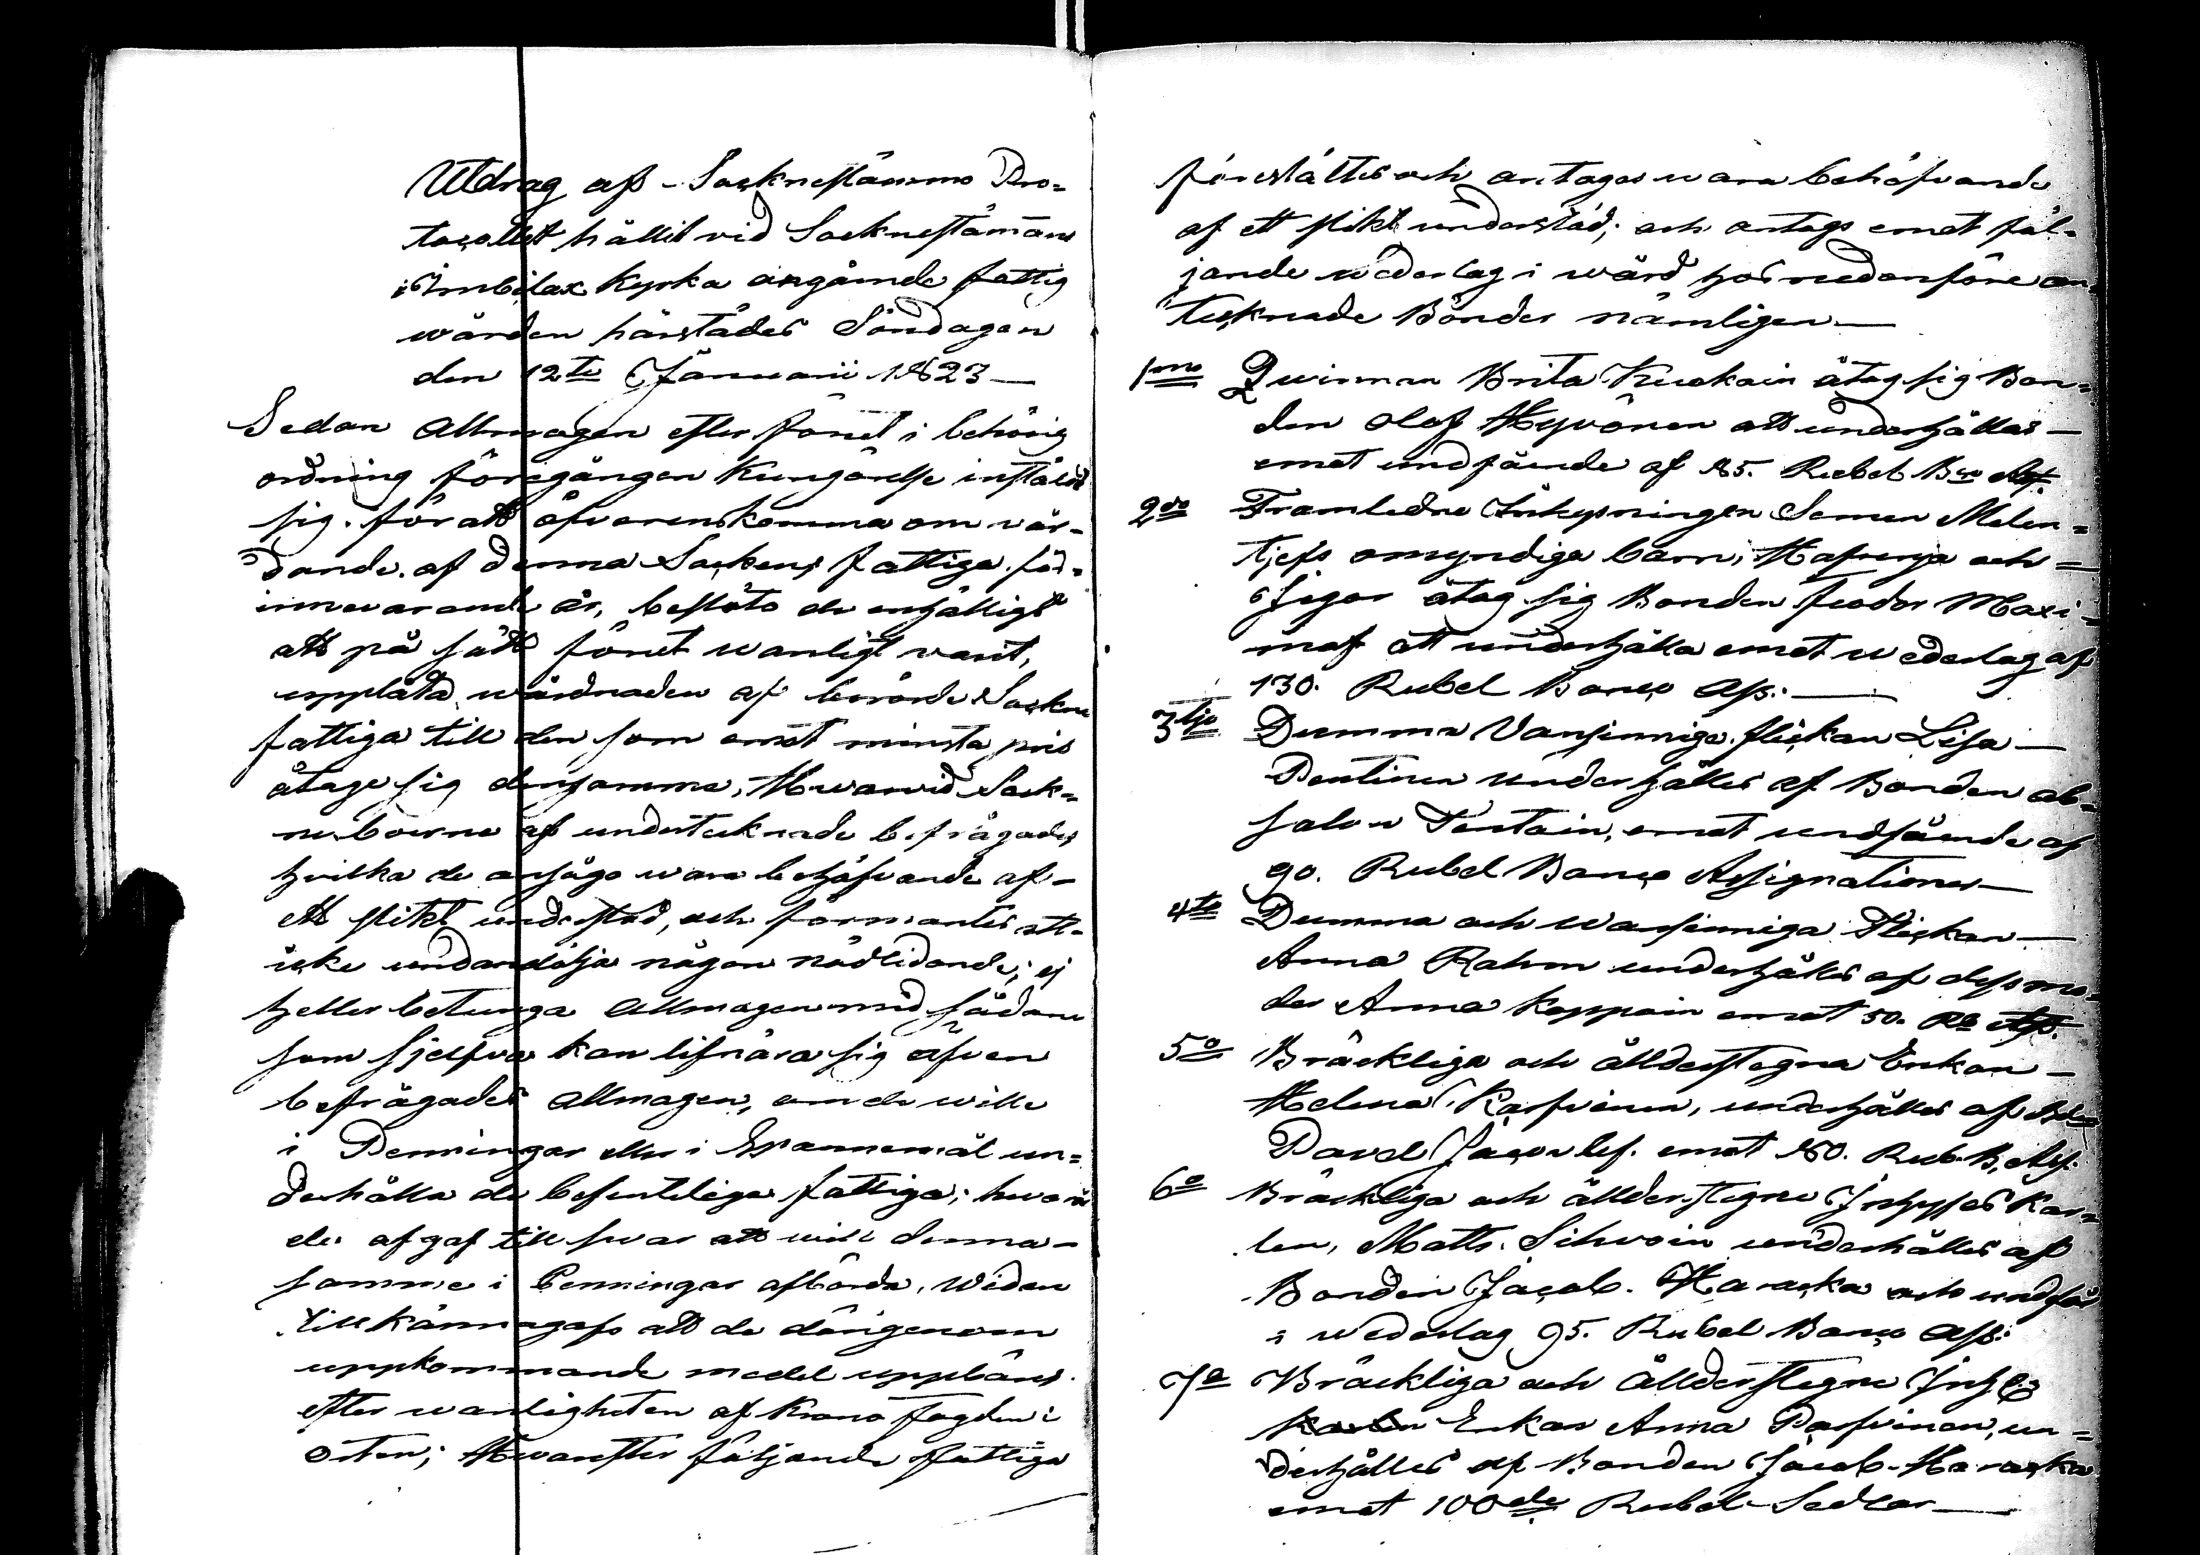 Utdrag af Socknestämmo Pro-
tocollet hållit vid Socknestämman
i Imbilax Kyrka angående fattig
wården härstädes Söndagen
den 12te Januarii 1823 —
Sedan Allmogen efter förut i behörig
ordning föregången Kungörelse instäldt
sig för att öfverenskomma om vår-
dande af denna Sockens fattiga för
innevarande år, beslöto de enhälligt
att på sätt förut wanligt varit,
upplåta wårdnaden af berörde Sockne
fattiga till den som emot minsta pris
åtager sig densamma, Hwarvid Sock-
neboerne af undertecknade befrågades
hvilka de ansågo wara behöfvande af
ett slikt understöd, och förmantes att
icke undandölja någon nödlidande, ej
heller betunga Allmogen med sådane
som sjelfva kan lifnära sig äfven
befrågades Allmogen, om de wille
i Penningar eller i Spannemål un-
derhålla de befinteliga fattiga; hwarå
de afgaf till svar att wilja denna
samme i Penningar afbörda. Widare
tillkännagafs att de därigenom
uppkommande medel uppbäres
efter wanligheten af Krono fogden i
Orten; Hwarefter följande fattiga
föreställtes och antagos wara behöfvande
af ett slikt understöd, och antogs emot föl-
jande wederlag i wård hos nedanföre an-
tecknade Bönder nämligen —
1mo Qwinnan Brita Kuokain åtog sig Bon-
den Olof Hyvönen att underhållas —
emot undfående af 85. Rubel Bco Ass.
2do Framledne Inhysningen Semen Melen-
tjefs omyndiga barn, Mafwja och
Jegor åtog sig Bonden Feodor Maxi-
mof att underhålla emot wederlag af
130. Rubel Banco Ass. —
3tjo Dumma Vansinniga flickan Lisa —
Pentinen underhålles af Bonden Ab-
salon Tertain, emot undfående af
90. Rubel Banco Assignationer —
4to Dumma och wansinniga Flickan —
Anna Rahm underhålles af dess mo-
der Anna Koppoin emot 50. Rb Ass.
5o Bräckliga och ålderstegna Enkan —
Helena Karsvinen, underhålles af
Pavel Jacovlef. emot 80. Rub. B. Ass.
6o Bräckliga och ålderstegne Inhyses Kar-
len, Matts Sihvoin underhålles af
Bonden Jacob Haracka och undfår
i wederlag 95. Rubel Banco Ass.
7o Bräckliga och Ålderstegne Inhyses
Karlen Enkan Anna Parfvinen, un-
derhålles af Bonden Jacob Haracka
emot 100de Rubel Sedlar —